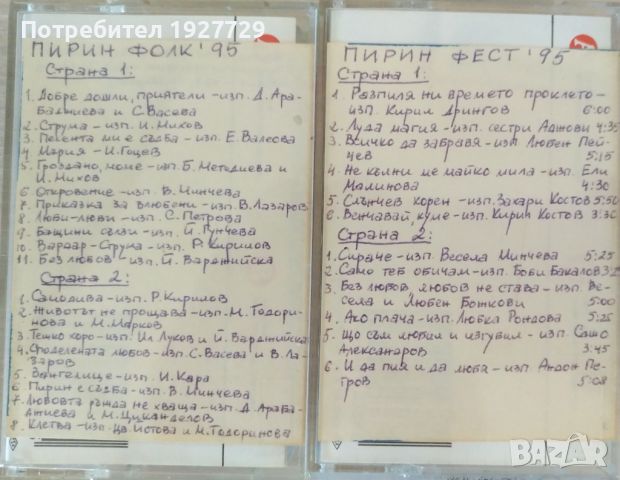 Потребител 1927729
ПИРИН ФОЛК '95
Страна 1:
1. Добре дошли, приятели – изп. Д. Ара-
баджиева и С. Васева
2. Струма – изп. И. Михов
3. Песента ми е съдба – изп. Е. Валеова
4. Мария – И. Гоцев
5. Гроздано, моме – изп. Б. Методиева и
И. Михов
6 Откровение – изп. В. Минчева
7. Приказка за влюбени – изп. В. Лазаров
8. Люби-люби – изп. С. Петрова
9. Бащини сълзи – изп. Й. Гунчева
10. Вардар-Струма – изп. Р. Кирилов
11. Без любов – изп. Й. Варджийска
Страна 2:
1. Самодива – изп. Р. Кирилов
2. Животът не прощава – изп. М. Тодори-
нова и М. Марков
3. Тешко хоро – изп. Ил Луков и Й. Варджийска
4. Споделената любов – изп. С. Васева и В. Ла-
заров
5. Вангелице – изп. И. Кара
6. Пирин е съдба – изп. В. Минчева
7. Любовта ръжда не хваща – изп. Д. Араба-
джиева и М. Цуканделов
8. Клетва – изп. Цв. Истова и М. Тодоринова
ПИРИН ФЕСТ '95
Страна 1:
1. Разпиля ни времето проклето –
изп. Кирил Дрингов 6:00
2. Луда магия – изп. сестри Аджови 4:35
3. Всичко да забравя – изп. Любен Пей-
чев 5:15
4. Не кълни ме майко мила – изп. Ели
Малинова 4:30
5. Слънчев корен – изп. Захари Костов 5:50
6. Венчавай, куме – изп. Кирил Костов 3:30
Страна 2:
1. Сираче – изп. Весела Минчева 5:25
2. Само теб обичам – изп. Боби Бакалов
3. Без любов любов не става – изп. Ве-
села и Любен Божкови 5:00
4. Ако плача – изп. Любка Рондова 5:25
5. Що съм любил и изгубил – изп. Сашо
Александров 3:45
6. И да пия и да любя – изп. Андон Пе-
тров 5:08
BAZAR